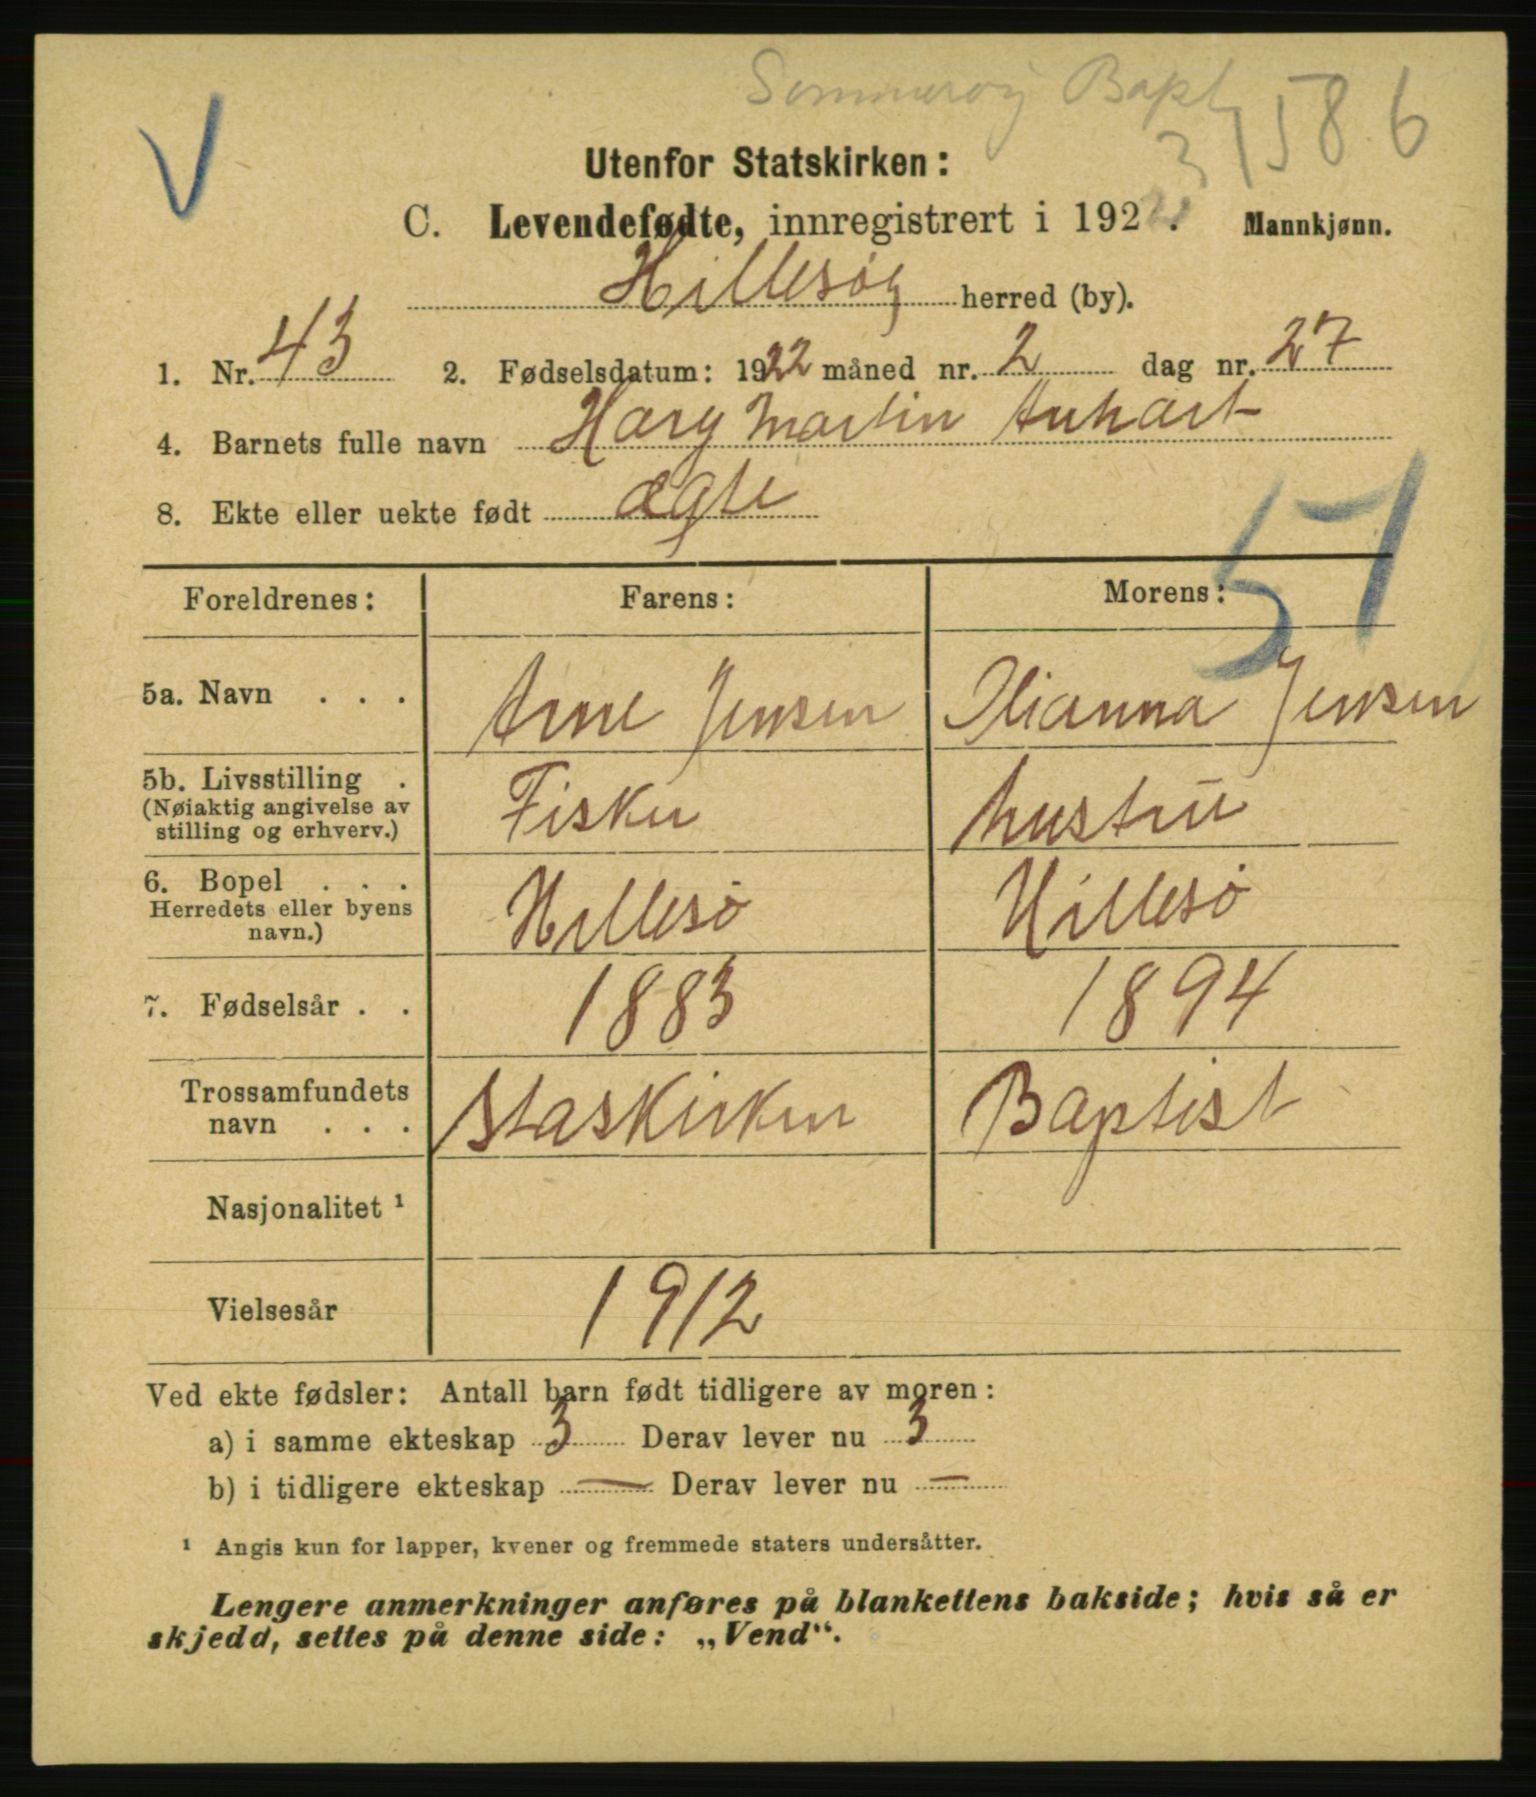 Sommerøy Bapt
31586
V
Utenfor Statskirken:
C. Levendefødte, innregistrert i 1922. Mannkjønn.
Hillesøy herred (by).
1. Nr. 43 2. Fødselsdatum: 1922 måned nr. 2 dag nr. 27
4. Barnets fulle navn Hary Martin Anhart
8. Ekte eller uekte født ægte
57
Foreldrenes: Farens: Morens:
5a. Navn . . . Arne Jensen Jensen
5b. Livsstilling . Fisker hustru
(Nøiaktig angivelse av
stilling og erhverv.)
6. Bopel . . . Hillesø Hillesø
Herredets eller byens
navn.)
7. Fødselsår . . 1883 1894
Trossamfundets
navn . . . Staskirken Baptist
Nasjonalitet ¹
Vielsesår 1912
Ved ekte fødsler: Antall barn født tidligere av moren:
a) i samme ekteskap 3 Derav lever nu 3
b) i tidligere ekteskap — Derav lever nu —
¹ Angis kun for lapper, kvener og fremmede staters undersåtter.
Lengere anmerkninger anføres på blankettens bakside; hvis så er
skjedd, settes på denne side: „Vend“.